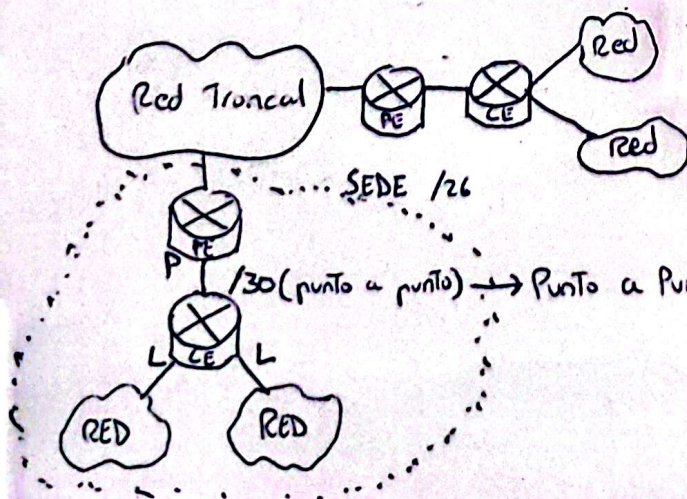 Red
Red Troncal
PE
CE
Red
SEDE /26
PE
P
/30 (punto a punto) → Punto a
CE
L
L
RED
RED